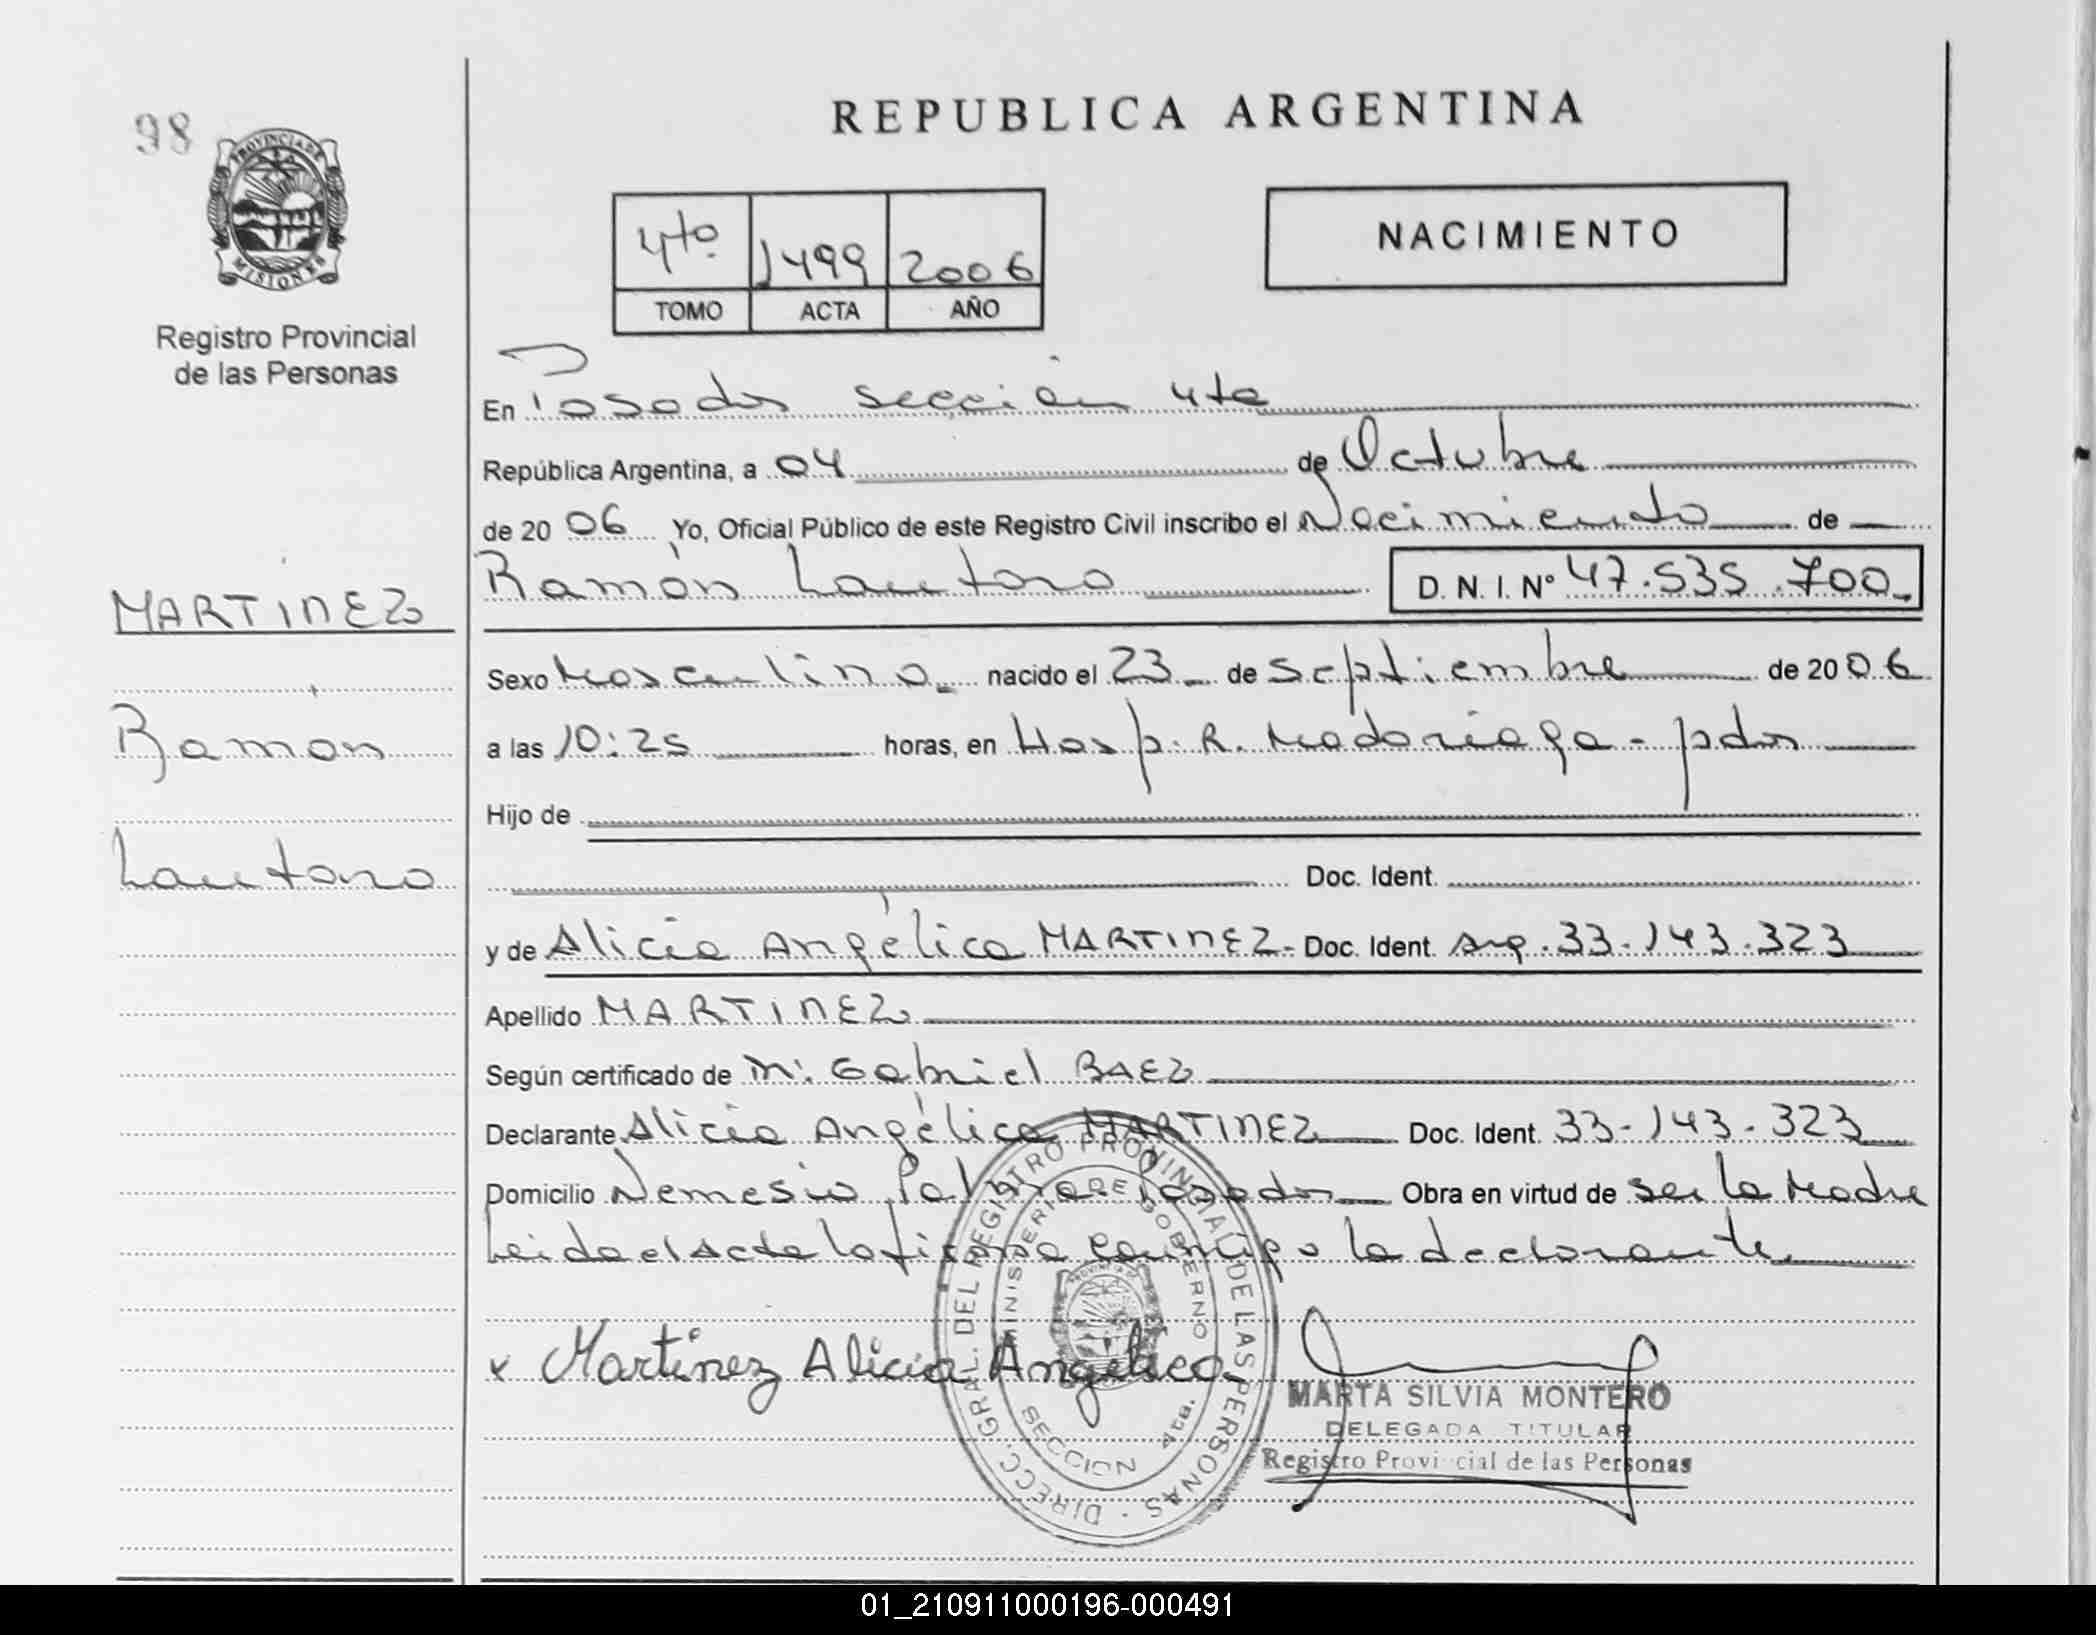 98
PROVINCIA DE
MISIONES
Registro Provincial
de las Personas
REPUBLICA ARGENTINA
4to 1499 2006
TOMO ACTA AÑO
NACIMIENTO
En Posadas sección 4ta
República Argentina, a 04 de Octubre
de 2006 Yo, Oficial Público de este Registro Civil inscribo el Nacimiento de
Ramón Lautaro D. N. I. Nº 47.535.700
MARTINEZ
Ramón
Lautaro
Sexo Masculino nacido el 23 de Septiembre de 2006
a las 10:25 horas, en Hosp. R. Madariaga - pdas
Hijo de
Doc. Ident.
y de Alicia Angélica MARTINEZ - Doc. Ident. Arg. 33.143.323
Apellido MARTINEZ
Según certificado de Gabriel BAEZ
Declarante Alicia Angélica MARTINEZ Doc. Ident. 33-143-323
Domicilio Nemesio Posadas Obra en virtud de ser la Madre
Leida el Acta la firma conmigo la declarante
x Martinez Alicia Angelica
DIRECC. GRAL. DEL REGISTRO PROVINCIAL DE LAS PERSONAS
MINISTERIO DE GOBIERNO
SECCION 4ta.
MARTA SILVIA MONTERO
DELEGADA TITULAR
Registro Provincial de las Personas
01_210911000196-000491